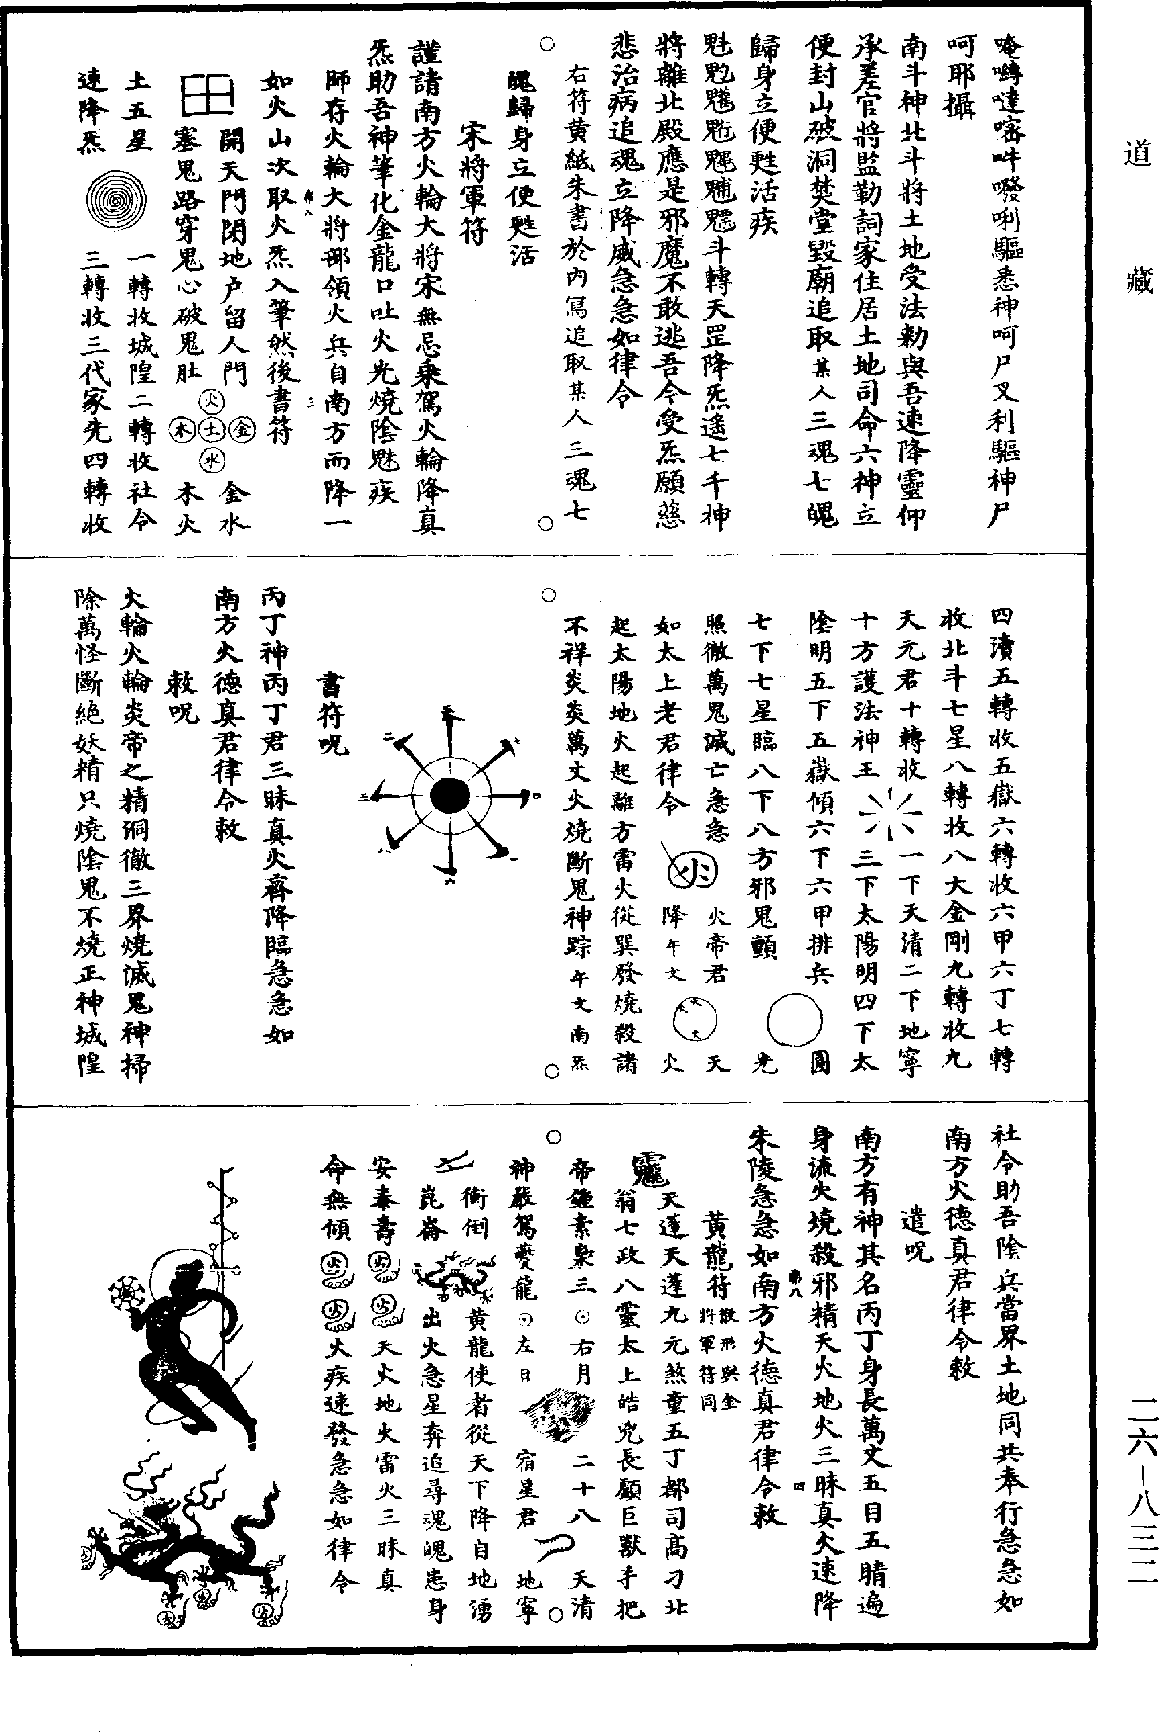 道藏
唵囀噠㗭吽㘔唎驅悉神呵尸叉利驅神尸
呵耶攝
南斗神北斗將土地受法勑與吾速降靈仰
承差官將監勒詞家住居土地司命六神立
便封山破洞焚堂毀廟追取某人三魂七魄
歸身立便甦活疾
斗轉天罡降炁遙七千神
將離北殿應是邪魔不敢逃吾今受炁願慈
悲治病追魂立降威急急如律令
右符黃紙朱書於內寫追取某人三魂七
魄歸身立便甦活
宋將軍符
謹請南方火輪大將宋無忌乘駕火輪降真
炁助吾神筆化金龍口吐火光燒陰魅疾
師存火輪大將部領火兵自南方而降一
如火山次取火炁入筆然後書符
開天門閉地戶留人門 金水
塞鬼路穿鬼心破鬼肚 木火
火 金 土 木 水
土五星 一轉收城隍二轉收社令
速降炁 三轉收三代家先四轉收
四瀆五轉收五嶽六轉收六甲六丁七轉
收北斗七星八轉收八大金剛九轉收九
天元君十轉收 一下天清二下地寧
十方護法神王 三下太陽明四下太
陰明五下五嶽傾六下六甲排兵 圓
七下七星臨八下八方邪鬼顫 光
照徹萬鬼滅亡急急 火帝君 天
如太上老君律令 降午文 火
起太陽地火起離方雷火從巽發燒殺諸
不祥炎炎萬丈火燒斷鬼神踪午文南炁
書符呪
丙丁神丙丁君三昧真火齊降臨急急如
南方火德真君律令敕
敕呪
火輪火輪炎帝之精洞徹三界燒滅鬼神掃
除萬怪斷絕妖精只燒陰鬼不燒正神城隍
社令助吾陰兵當界土地同共奉行急急如
南方火德真君律令敕
遣呪
南方有神其名丙丁身長萬丈五目五睛遍
身流火燒殺邪精天火地火三昧真火速降
朱陵急急如南方火德真君律令敕
黃龍符 散形與金將軍符同
天蓬天蓬九元煞童五丁都司高刁北
翁七政八靈太上皓兇長顱巨獸手把
帝鐘素梟三 右月 二十八 天清
神嚴駕夔龍 左日 宿星君 地寧
衝倒 黃龍使者從天下降自地湧
崑崙 出火急星奔追尋魂魄患身
安泰壽 天火地火雷火三昧真
命無傾 火疾速發急急如律令
二六－八三二